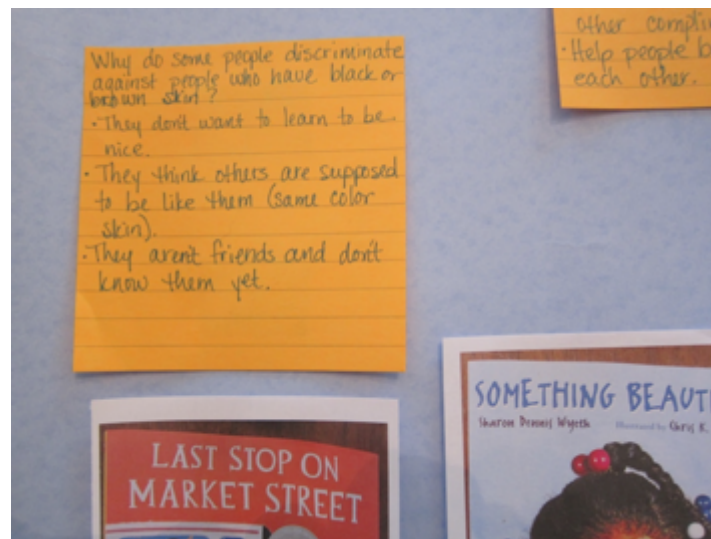 Why do some people discriminate
against people who have black or
brown skin?
· They don't want to learn to be
nice.
· They think others are supposed
to be like them (same color
skin).
· They aren't friends and don't
know them yet.
other
· Help people
each other.
LAST STOP ON
MARKET STREET
SOMETHING
Sharon Dennis Wyeth Illustrated by Chris K.